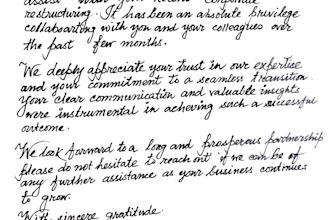 assist with your recent corporate
restructuring. It has been an absolute privilege
collaborating with you and your colleagues over
the past few months.
We deeply appreciate your trust in our expertise
and your commitment to a seamless transition.
Your clear communication and valuable insights
were instrumental in acheving such a successful
outcome.
We look forward to a long and prosperous partnership
please do not hesitate to reach out if we can be of
any further assistance as your business continues
to grow.
With sincere gratitude